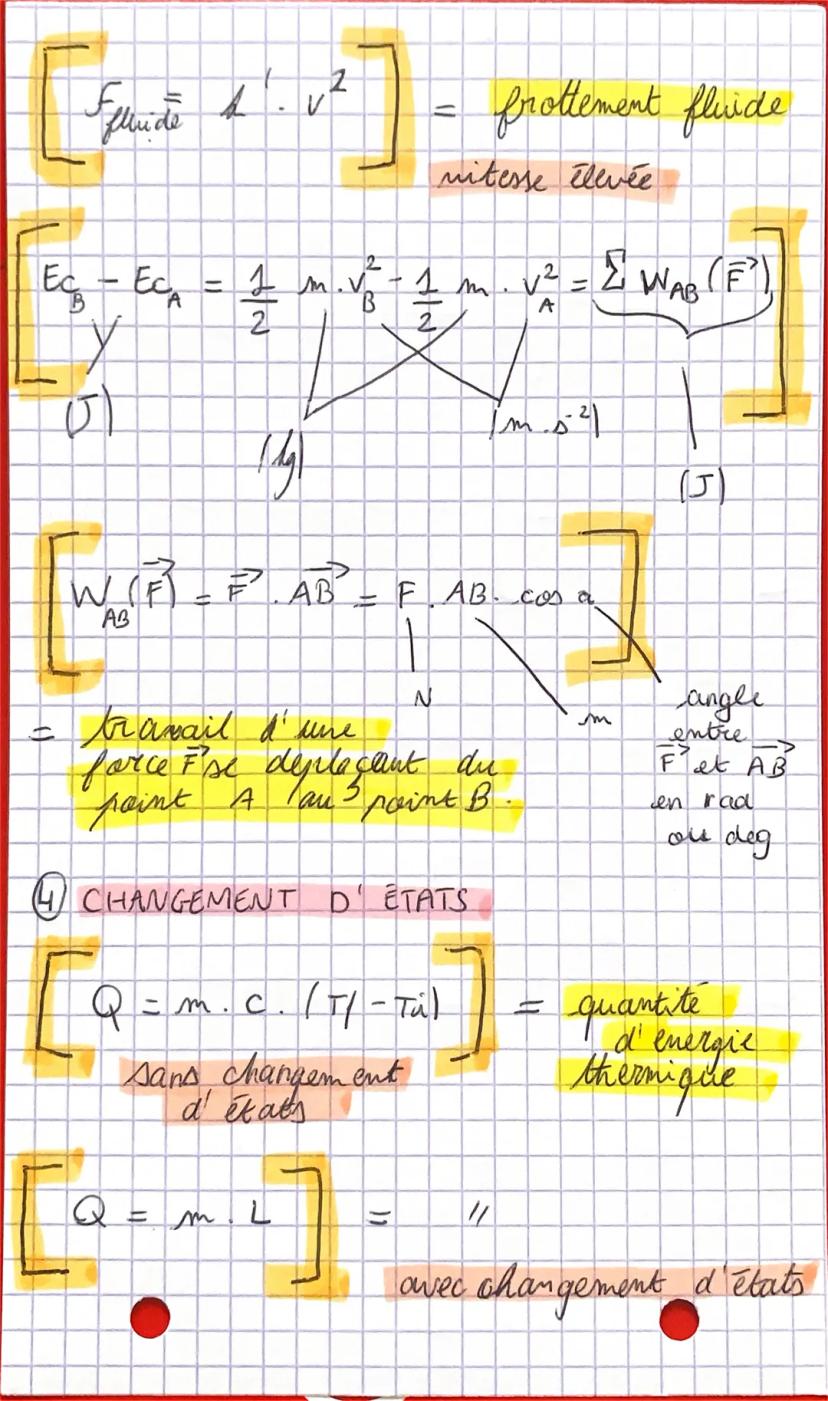 F fluide = k'. v² = frottement fluide
vitesse élevée
Ec_B - Ec_A = 1/2 m. v_B² - 1/2 m. v_A² = Σ W_AB (F⃗)
(J) (kg) (m.s⁻²) (J)
W_AB(F⃗) = F⃗ . AB⃗ = F . AB. cos a
N m angle
entre
F⃗ et AB⃗
en rad
ou deg
= travail d'une
force F⃗ se déplaçant du
point A au point B.
④ CHANGEMENT D'ÉTATS
Q = m. c. (Tf - Ti) = quantité
d'énergie
thermique
sans changement
d'états
Q = m. L = "
avec changement d'états